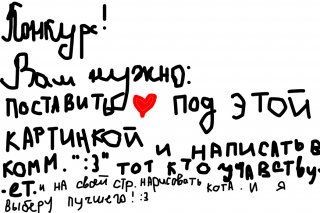 Конкурс!
Вам нужно:
ПОСТАВИТЬ ❤ ПОД ЭТОЙ
КАРТИНКОЙ И НАПИСАТЬ В
КОММ. ":3" ТОТ КТО УЧАВСТВУ-
-ЕТ. И НА СВОЙ СТР. НАРИСОВАТЬ КОТА. И Я
ВЫБЕРУ ЛУЧШЕГО! :3